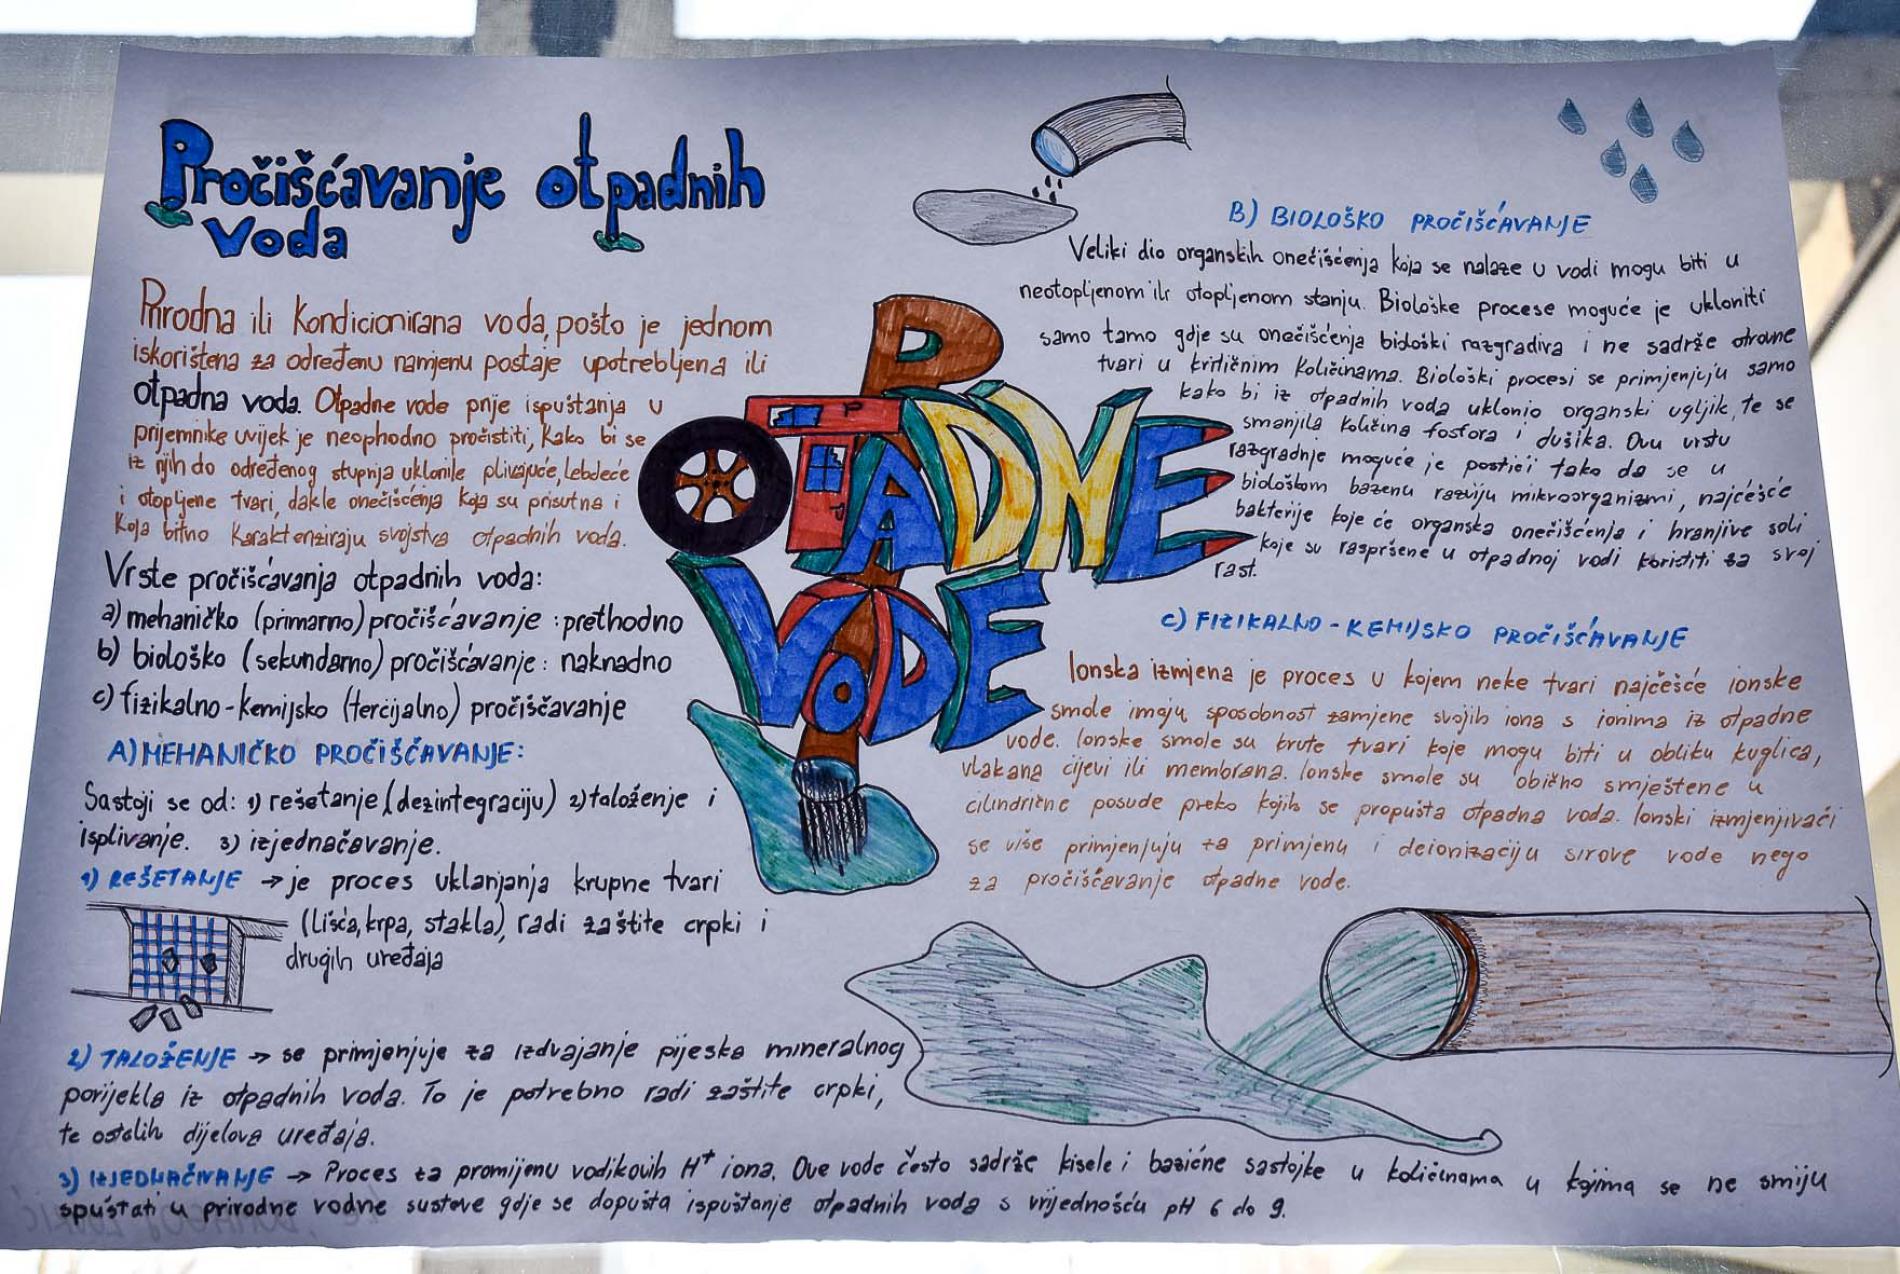 Pročišćavanje otpadnih
Voda
Prirodna ili Kondicionirana voda, pošto je jednom
iskorištena za određenu namjenu postaje upotrebljena ili
otpadna voda. Otpadne vode prije ispuštanja u
prijemnike uvijek je neophodno pročistiti, kako bi se
iz njih do određenog stupnja uklonile plivajuće, lebdeće
i otopljene tvari, dakle onečišćenja koja su prisutna i
koja bitno karakteriziraju svojstva otpadnih voda.
Vrste pročišćavanja otpadnih voda:
a) mehaničko (primarno) pročišćavanje : prethodno
b) biološko (sekundarno) pročišćavanje : naknadno
c) fizikalno-kemijsko (tercijalno) pročišćavanje
A) MEHANIČKO PROČIŠČAVANJE:
Sastoji se od: 1) rešetanje (dezintegraciju) 2) taloženje i
isplivanje. 3) izjednačavanje.
1) REŠETANJE → je proces uklanjanja krupne tvari
(lišća, krpa, stakla), radi zaštite crpki i
drugih uređaja
2) TALOŽENJE → se primjenjuje za izdvajanje pijeska mineralnog
porijekla iz otpadnih voda. To je potrebno radi zaštite crpki,
te ostalih dijelova uređaja.
3) IZJEDNAČIVANJE → Proces za promijenu vodikovih H⁺ iona. Ove vode često sadrže kisele i bazične sastojke u količinama u kojima se ne smiju
spuštati u prirodne vodne sustave gdje se dopušta ispuštanje otpadnih voda s vrijednošću pH 6 do 9.
OTPADNE
VODE
B) BIOLOŠKO PROČIŠĆAVANJE
Veliki dio organskih onečišćenja koja se nalaze u vodi mogu biti u
neotopljenom ili otopljenom stanju. Biološke procese moguće je ukloniti
samo tamo gdje su onečišćenja biološki razgradiva i ne sadrže otrovne
tvari u kritičnim količinama. Biološki procesi se primjenjuju samo
kako bi iz otpadnih voda uklonio organski ugljik, te se
smanjila količina fosfora i dušika. Ovu vrstu
razgradnje moguće je postići tako da se u
biološkom bazenu razviju mikroorganizmi, najćešće
bakterije koje će organska onečišćenja i hranjive soli
koje su raspršene u otpadnoj vodi koristiti za svoj
rast.
C) FIZIKALNO-KEMIJSKO PROČIŠĆAVANJE
Ionska izmjena je proces u kojem neke tvari najčešće ionske
smole imaju sposobnost zamjene svojih iona s ionima iz otpadne
vode. Ionske smole su krute tvari koje mogu biti u obliku kuglica,
vlakana cijevi ili membrana. Ionske smole su obično smještene u
cilindrične posude preko kojih se propušta otpadna voda. Ionski izmjenjivači
se više primjenjuju za primjenu i deionizaciju sirove vode nego
za pročišćavanje otpadne vode.